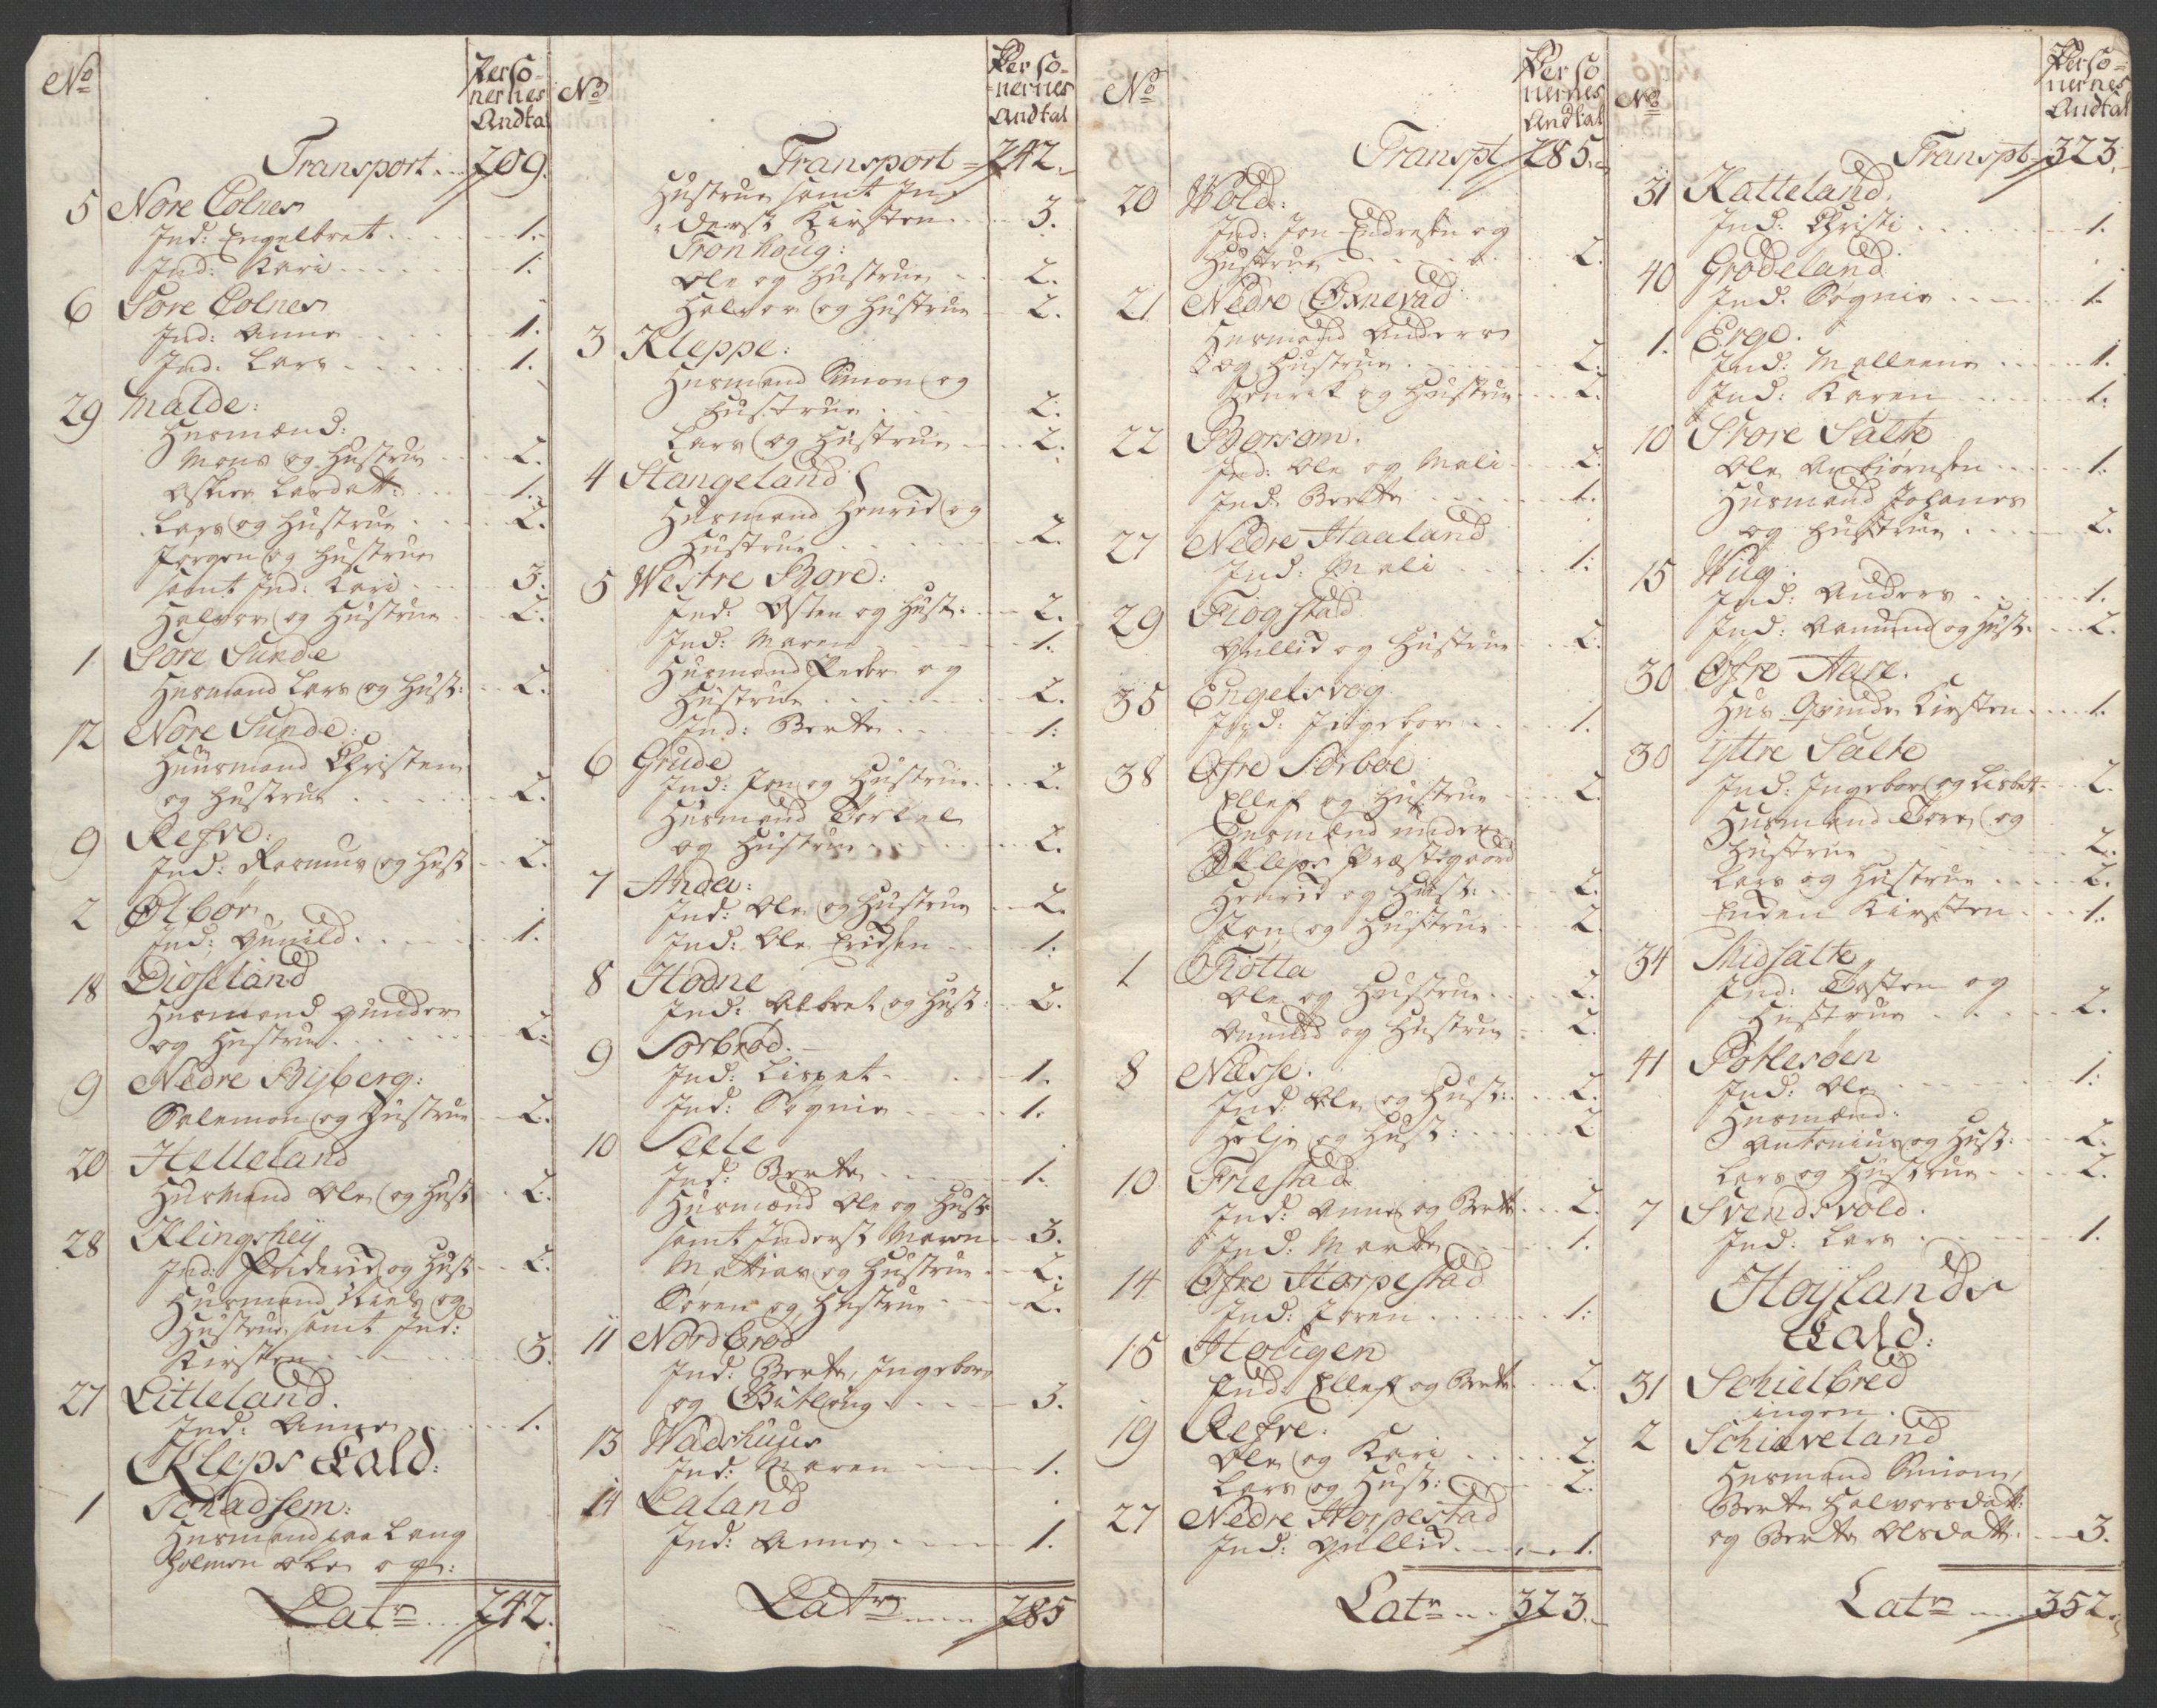 No
Perso-
nernes
Andtal
Transport . . 209.
5 Nore Colnes
Ind: Engelbret . . . 1.
Ind: Kari . . . 1.
6 Sore Colnes
Ind: Anne . . . 1.
Ind: Lars . . . 1.
29 Malde:
Husmænd:
Mons og Hustrue . . 2.
Lardatt: . . 1.
Lars og Hustrue . . 2.
Jorgen og Hustrue
samt Ind: Kari . . . 3.
Halvor og Hustrue . . 2.
1 Sore Sunde
Husmand Lars og Hust: . . 2.
12 Nore Sunde:
Huusmand Christen
og Hustrue . . . 2.
9 Refve:
Ind: Rasmus og Hust . . 2.
2 Ølbør
Ind: Gunild . . . 1.
18 Diøseland
Husmand Gunder
og Hustrue . . . 2.
9 Nedre Byberg:
Salemon og Hustrue . . 2.
20 Helleland
Husmand Ole og Hust . . 2.
28 Klingshey
Ind: Friderid og Hust . . 2.
Husmand Niels og
Hustrue samt Ind:
Kirsten . . . 3.
27 Litleland.
Ind: Anne . . . 1.
Kleps Kald:
1 Schadsem:
Husmand paa Lang
holmen Ole og:
Latr . . 242.
No
Perso-
nernes
Andtal
Transport 242.
Hustrue samt Ind
derst Kirsten . . 3.
Tronhoug:
Ole og Hustrue . . 2.
Halvor og Hustrue . . 2.
3 Kleppe:
Husmand Simon og
Hustrue . . . 2.
Lars og Hustrue . . . 2.
4 Stangeland
Husmand Henrid og
Hustrue . . . 2.
5 Westre Bore:
Ind: Osten og Hust: . . 2.
Ind: Maren . . . 1.
Husmand Peder og
Hustrue . . . 2.
Ind: Berte . . . 1.
6 Grude
Ind: Jon og Hustrue . . . 2.
Husmand Torkel
og Hustrue . . . 2.
7 Anda:
Ind: Ole og Hustrue . . 2.
Ind: Ole Eridsen . . . 1.
8 Hodne
Ind: Albret og Hust: . . 2.
9 Sorbrød.
Ind: Lispet . . . 1.
Ind: Søgnie . . . 1.
10 Seele
Ind: Berte . . . 1.
Husmænd Ole og Hust:
samt Inderst Maren . . 3.
Mattias og Hustrue . . 2.
Soren og Hustrue . . 2.
11 Nordbrød
Ind: Berte, Ingebor
og Gitloug . . . 3.
13 Wadshuus
Ind: Maren . . . 1.
14 Laland
Ind: Anne . . . 1.
Latr . . . 285
No
Perso
nernes
Andtal
Transpt 285.
20 Wold:
Ind: Jon Endresen og
Hustrue . . . 2.
21 Nedre Øxnevad
Husmand Anders
og Hustrue . . . 2.
Henrik og Hustrue . . 2.
22 Borsom.
Ind: Ole og Mali . . . 2.
Ind: Berte . . . 1.
27 Nedre Haaland
Ind: Mali . . . 1.
29 Fiogstad
Gullid og Hustrue . . 2.
35 Engelsvog
Ind: Jingebor . . . 1.
38 Øfre Sørbøe
Ellef og Hustrue . . . 2.
Husmænd under
Kleps Præstegaard
Henrid og Hust: . . . 2.
Jon og Hustrue . . 2.
1 Tiøtta
Ole og Hustrue . . . 2.
Amund og Hustrue . . 2.
8 Næsse.
Ind: Ole og Hust: . . . 2.
Helje og Hust: . . . 2.
10 Friestad
Ind: Anne og Berte . . 2.
Ind: Marte . . . 1.
14 Øfre Horpestad
Ind: Joren . . . 1:
15 Hougen
Ind: Ellef og Berte . . 2.
19 Refve:
Ole og Kari . . . 2.
Lars og Hust: . . . 2.
27 Nedre Horpestad
Ind: Gullid . . . 1.
Latr . . 323.
No
Perso-
nernes
Andtal
Transpt 323.
31 Katteland.
Ind: Christi . . . 1.
40 Grodeland
Ind. Søgnie . . . 1.
1. Erge.
Ind: Malleene . . . 1.
Ind: Karen . . . 1.
10 Store Salte
Ole Anbiørnsen . . . 1.
Husmand Johanes
og Hustrue . . . 2.
15 Wug.
Ind: Anders . . . 1.
Ind: Aamund og Hust . . 2.
30 Øfre Aase.
Hus Qvinde Kirsten . . 1.
30 Yttre Salte
Ind: Ingebor og Lisbet . . 2.
Husmænd Tore og
Hustrue . . . 2.
Lars og Hustrue . . . 2.
Enden Kirsten . . 1.
34 Midsalte
Ind: Tosten og
Hustrue . . . 2.
41 Pollesøen
Ind: Ole . . . 1.
Husmænd:
Antonius og Hust: . . 2.
Lars og Hustrue . . . 2.
7 Svendsvold.
Ind: Lars . . . 1.
Høylands
Kald:
31 Schielbred
ingen.
2 Schiæveland
Husmand Simon,
Berte Halvorsdatt:
og Berte Olsdatt . . 3.
Latr . . . 352.